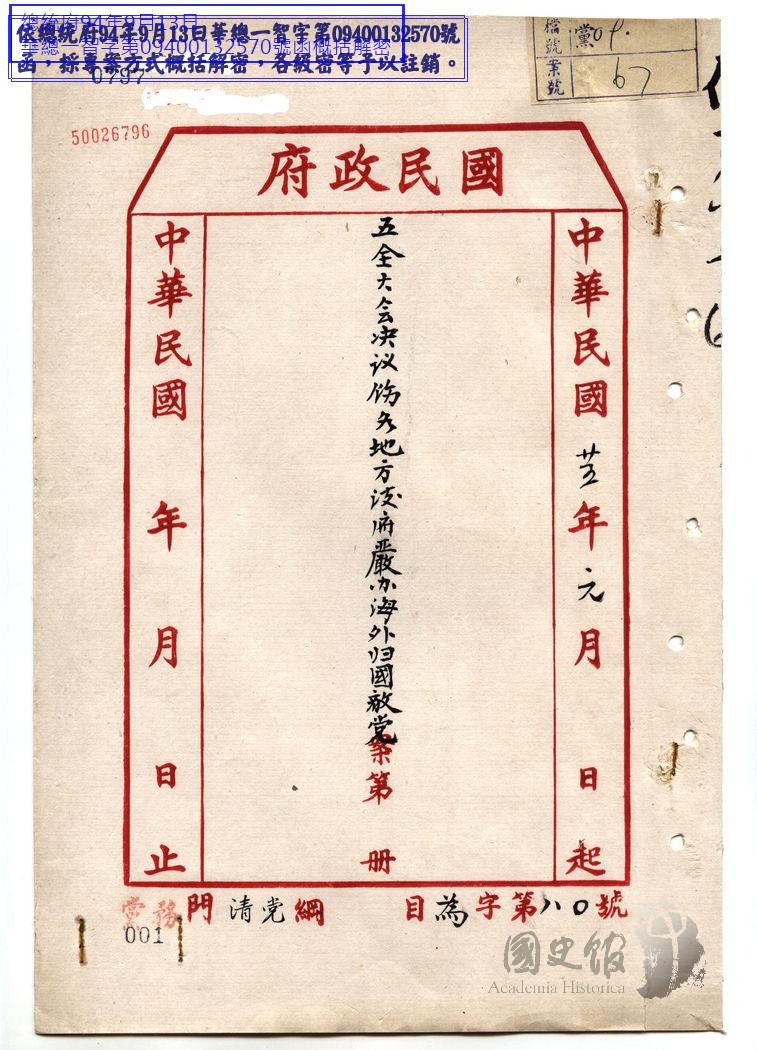 總統府94年9月13日
華總一智字第09400132570號函概括解密
依總統府94年9月13日華總一智字第09400132570號
函，採專案方式概括解密，各級密等予以註銷。
0797
檔號
黨09.
案號
67
50026796
國民政府
中華民國 廿五年元月 日起
五全大会决议饬各地方政府嚴办海外归國敵党案第 册
中華民國 年 月 日止
目為字第八〇號
黨務門清党綱
001
國史館
Academia Historica